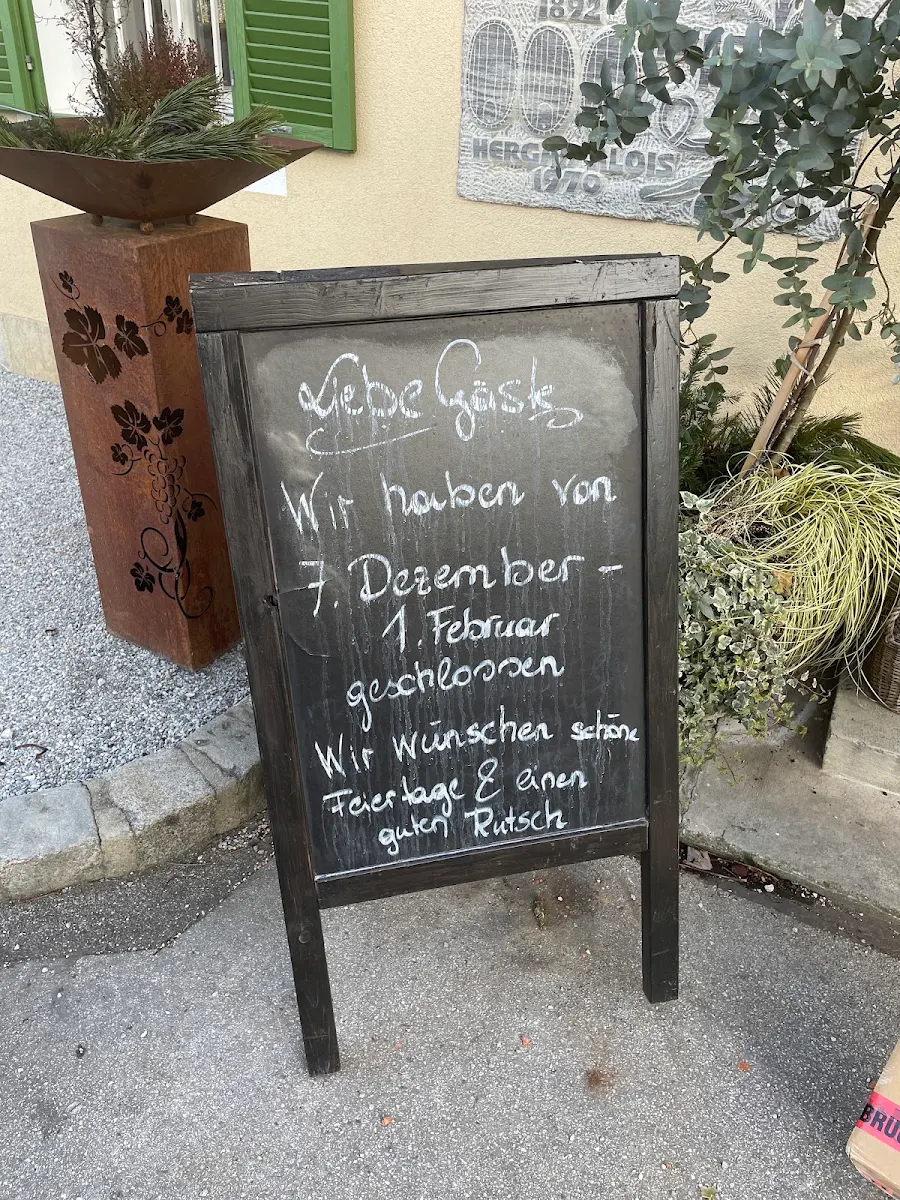 1892
HERG ALOIS
1970
Liebe Gäste
Wir haben von
7. Dezember -
1. Februar
geschlossen
Wir wünschen schöne
Feiertage & einen
guten Rutsch
BRÜ